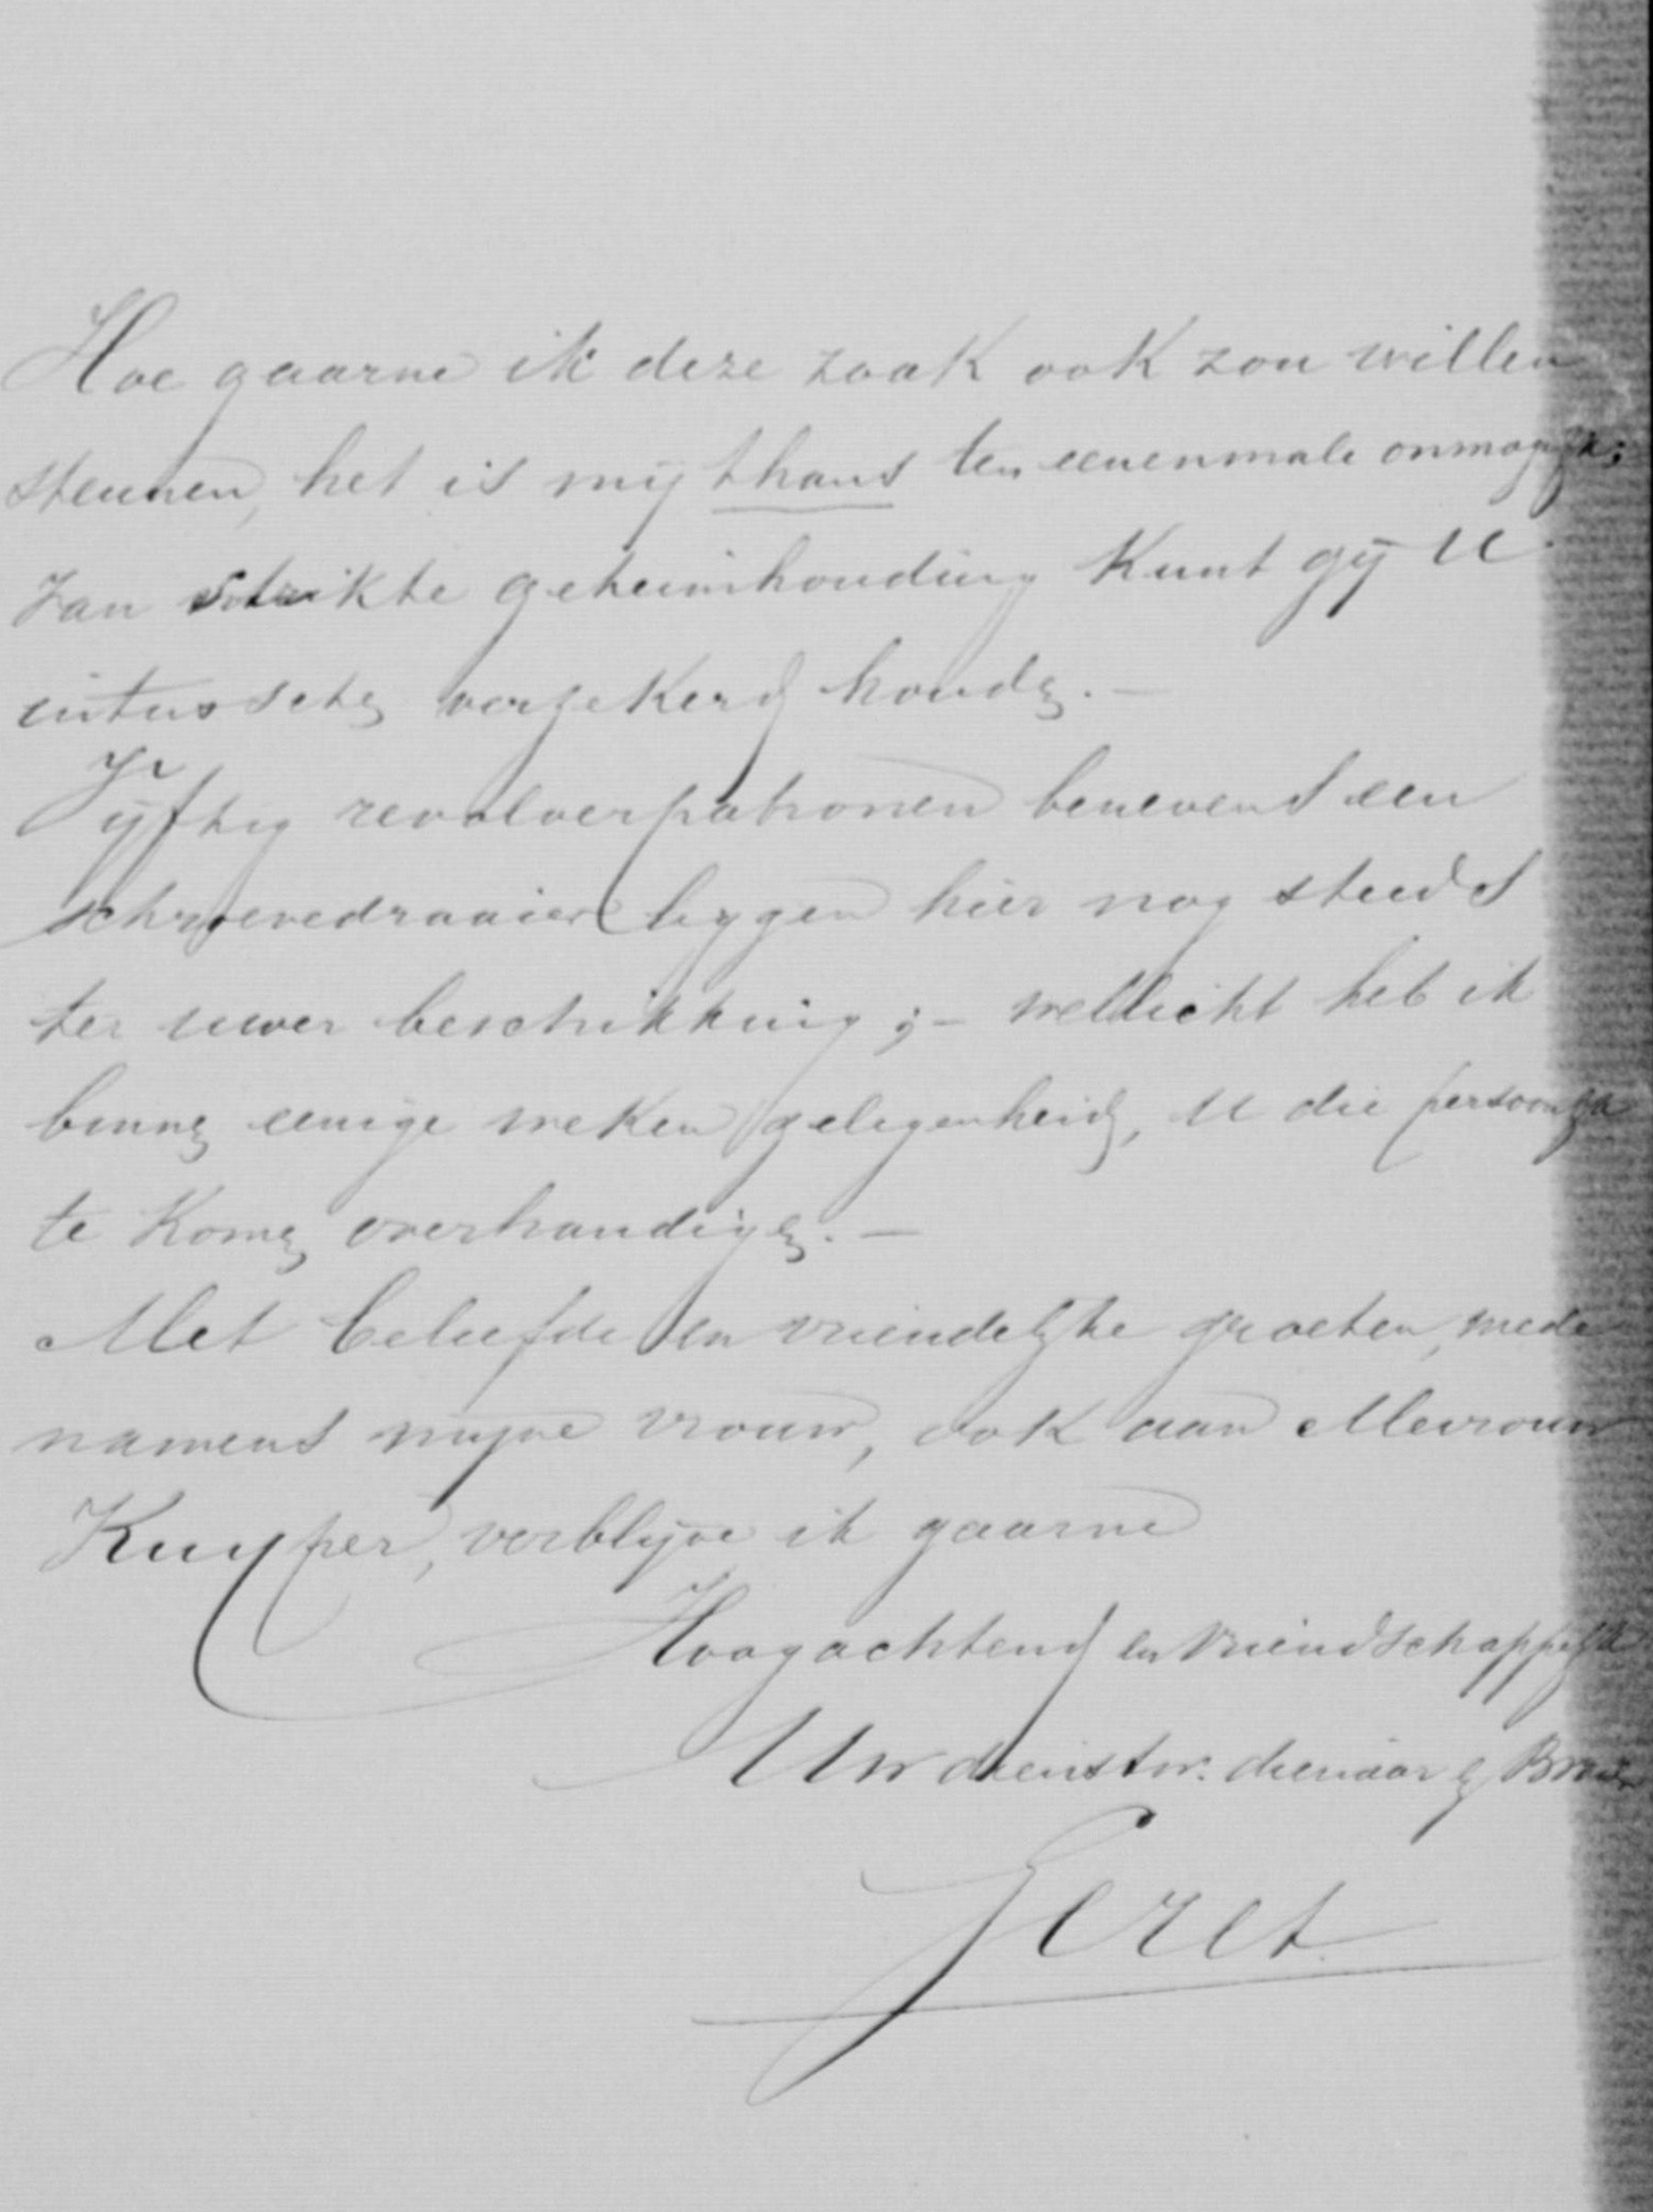 Hoe gaarne ik deze zaak ook zou willen
steunen, het is mij thans ten eenenmale onmogelijk;
van strikte geheimhouding kunt gij U
intusschen verzekerd houden. —
Vijftig revolverpatronen benevens een
schroevedraaier liggen hier nog steeds
ter uwer beschikking; — wellicht heb ik
binnen eenige weken gelegenheid, U die persoonlijk
te komen overhandigen. —
Met beleefde en vriendelijke groeten, mede
namens mijne vrouw, ook aan Mevrouw
Kuyper, verblijve ik gaarne
Hoogachtend en vriendschappelijk
Uw dienstw. dienaar en Broeder
Geret